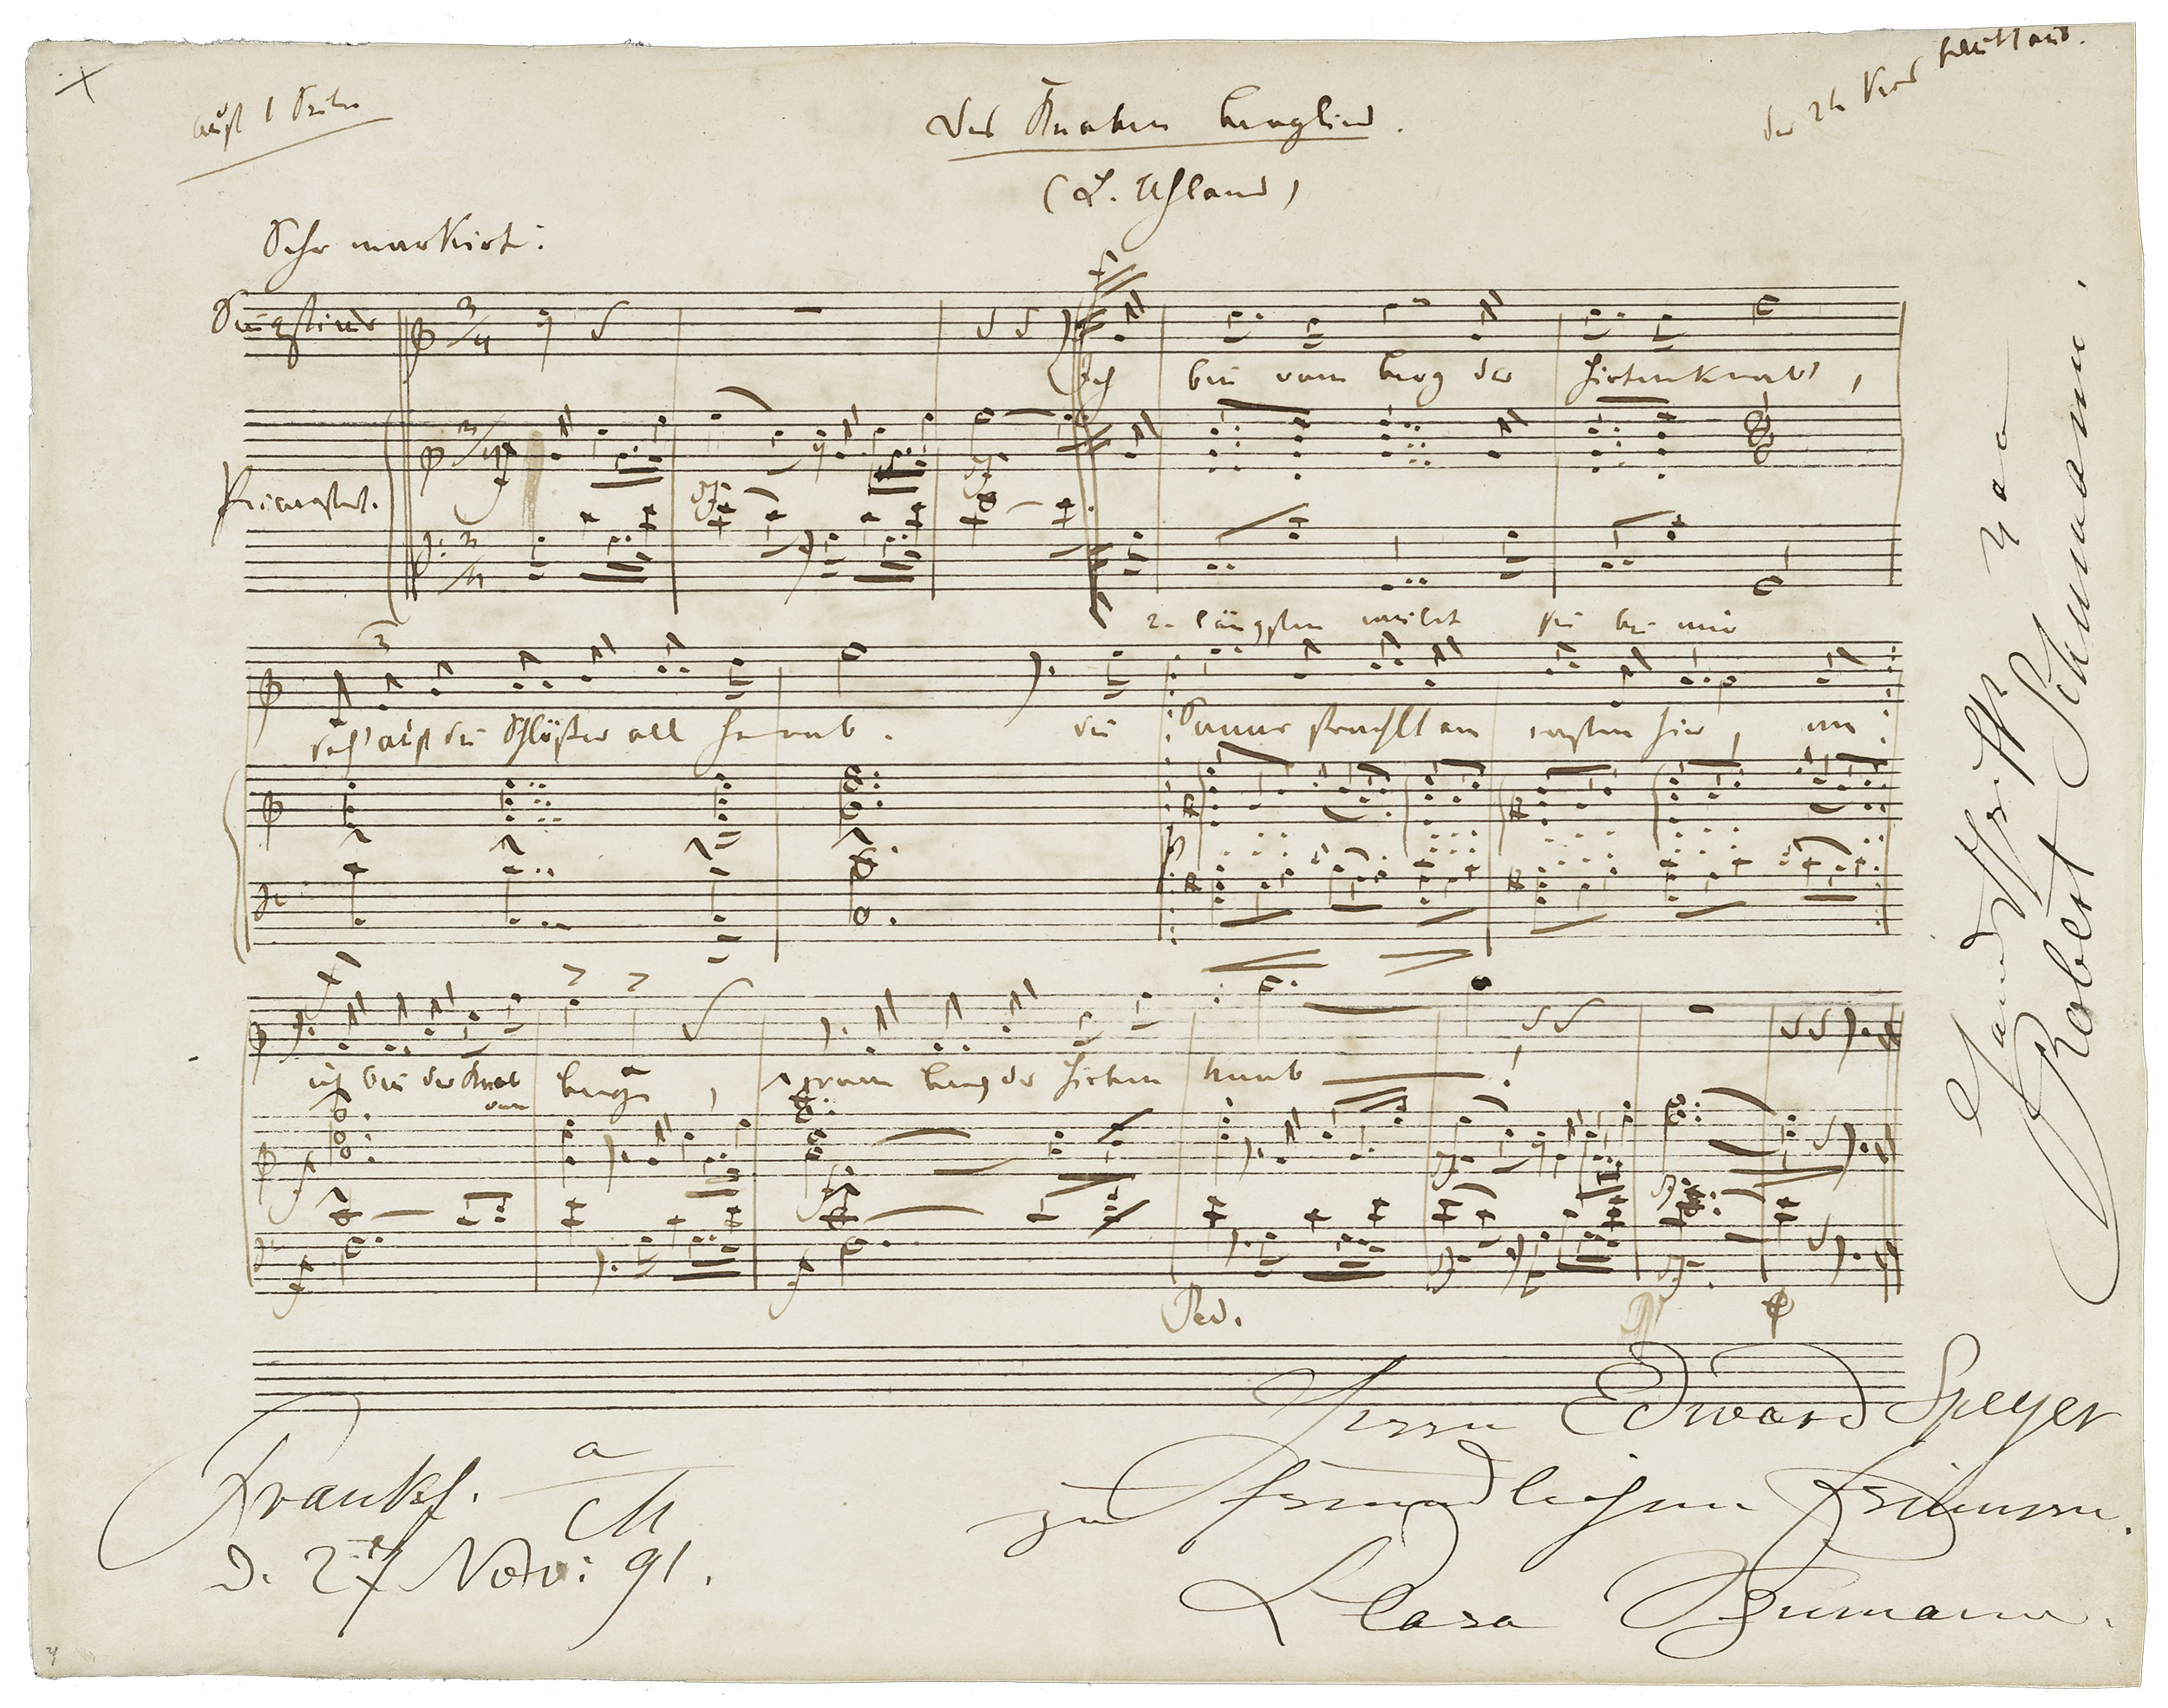 auf 1 Seite
Des Knaben Berglied.
(L. Uhland)
Sehr markirt:
Singstimme
Ich bin vom Berg der Hirtenknab',
Pianoforte.
2. längsten weilet sie bei mir
seh' auf die Schlößer all herab. die Sonne strahlt am ersten hier, am
ich bin der Knab vom Berge, vom Berg der Hirtenknab!
Ped.
Handschrift von
Robert Schumann.
Herrn Edward Speyer
zu freundlichem Erinnern.
Clara Schumann.
Frankf. a/M
d. 27 Nov: 91.